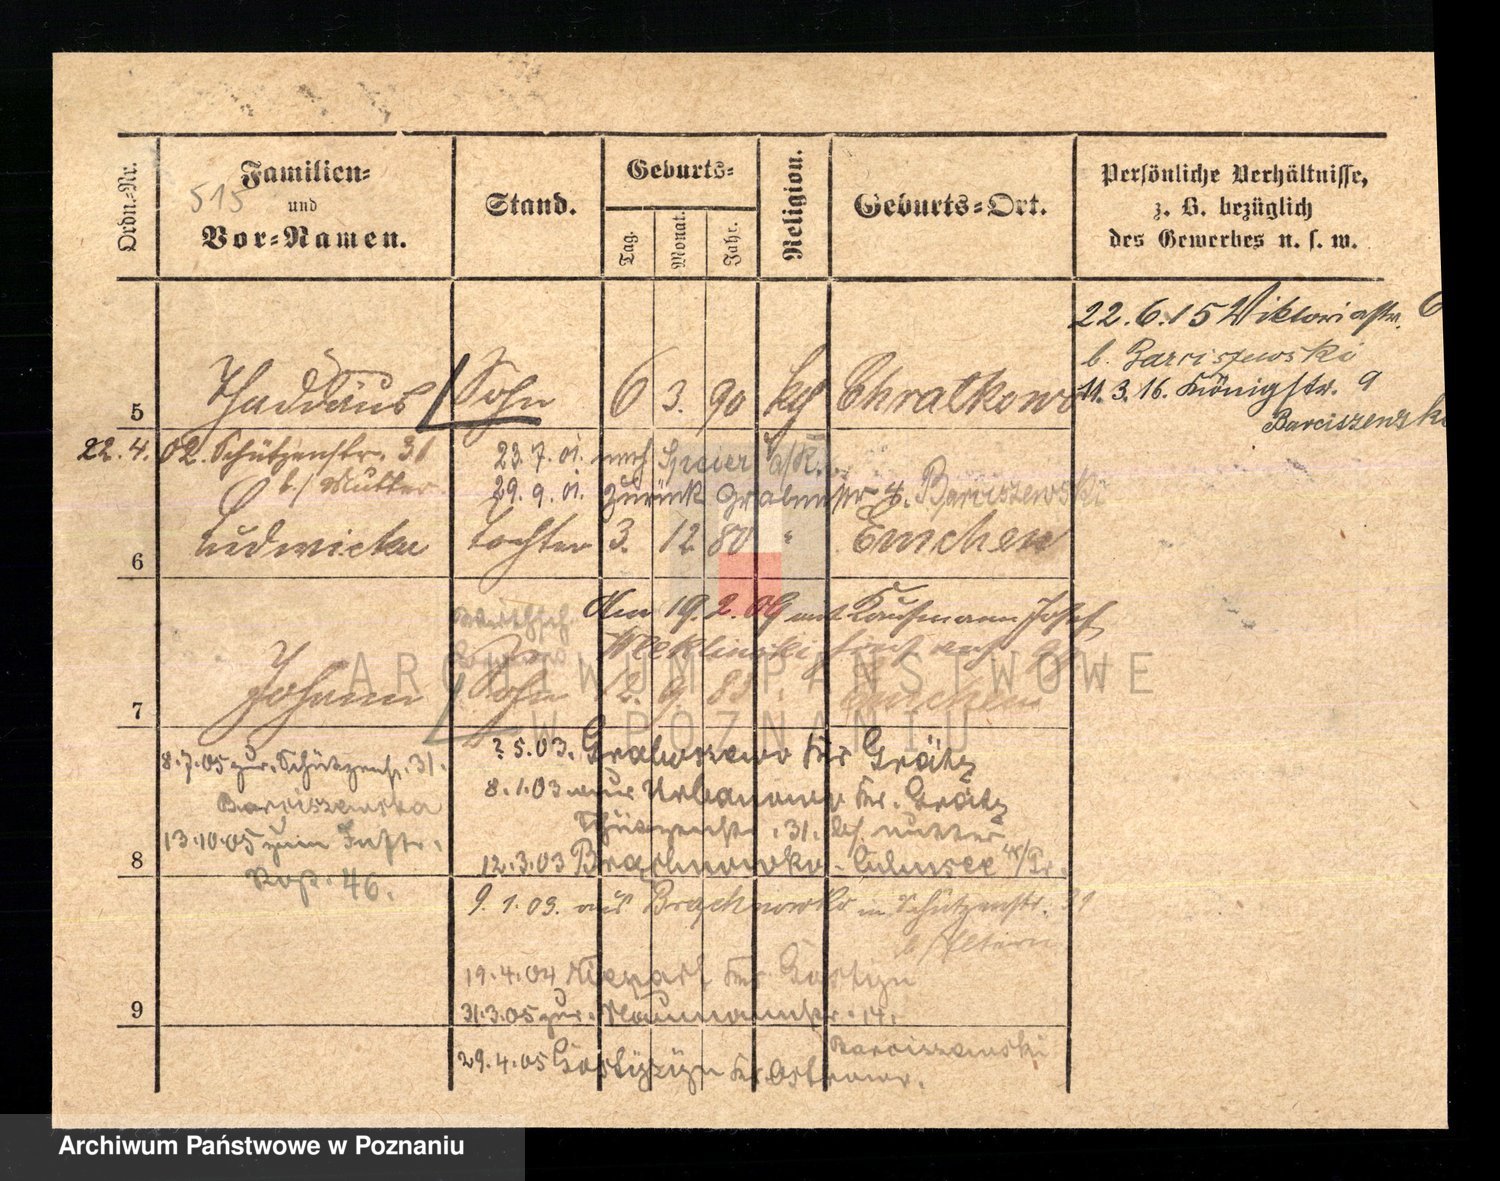 Ordn.-Nr.
Familien-
und
Vor-Namen.
515
Stand.
Geburts-
Tag.
Monat.
Jahr.
Religion.
Geburts-Ort.
Persönliche Verhältnisse,
z. B. bezüglich
des Gewerbes u. s. w.
22.6.15 Viktoriastr. 6
b. Barciszewski
11.3.16. Königstr. 9
Barciszewski
5 Thaddäus Sohn 6 3. 90 kth Chralkowo
22.4.02. Schützenstr. 31
b/ Mutter
23.7.01. nach Speier a/R.
29.9.01. zurück b. Barciszewski
6 Ludwicka Tochter 3. 12 80 " Emchen
Am 19.2.09 mit Kaufmann Josef
7 Johann Sohn 12. 9. 83 Emchen
8.7.05 zur. Schützenstr. 31.
Barciszewska
13.10.05 zum
46.
? 5.03. Kr. Grätz
8.1.03 aus Urbanowo Kr. Grätz
Schützenstr. 31. bei Mutter
8
12.3.03 Brachnowko - Culmsee W/Pr.
9.1.03. aus Brachnowko in Schützenstr. 31
b/ Eltern
19.4.04 Kr. Gostyn
9
31.3.05 zur. Naumannstr. 14.
Barciszewski
29.4.05 Kr. Ostrowo.
ARCHIWUM PAŃSTWOWE
W POZNANIU
Archiwum Państwowe w Poznaniu